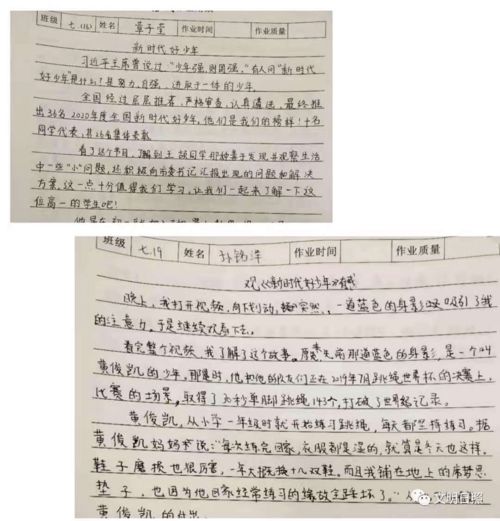 班级 七.(16) 姓名 章子莹 作业时间 作业质量
新时代好少年
习近平主席曾说过"少年强,则国强,"有人问"新时代
好少年是什么?是努力,自强,进取于一体的少年。
全国经过层层推荐,严格审查,认真遴选,最终推
出36名2020年度全国新时代好少年,他们是我们的榜样!十名
同学代表,其26名集体表彰
看了这个节目,了解到王 同学那种善于发现并观察生活
中一些"小"问题,还积极向市委书记汇报出现的问题和解决
方案,这一点十分值得我们学习,让我们一起来了解一下这
位高一的学生吧!
班级 七.19 姓名 孙铭泽 作业时间 作业质量
观《新时代好少年》有感
晚上,我打开视频,向下划动,突然,一道蓝色的身影吸引了我
的注意力,于是继续观看下去。
看完整个视频,我了解了这个故事。原来先前那道蓝色的身影,是一个叫
黄俊凯的少年,那是时,他和他的队友们正在2019年7月跳绳世界杯的决赛上,
比赛的场景,取得了30秒单脚跳绳143个,打破了世界纪录。
黄俊凯,从小学一年级时就开始练习跳绳,每天都坚持练习。据
黄俊凯妈妈来说:"每次练完回家,衣服都是湿的,就算是冬天也这样,
鞋子磨损也很厉害,一年大概换十几双鞋。而且我铺在地上的席梦思
垫子,也因为他回家经常练习的缘故全踩坏了。"
黄俊凯的付出
文明日照